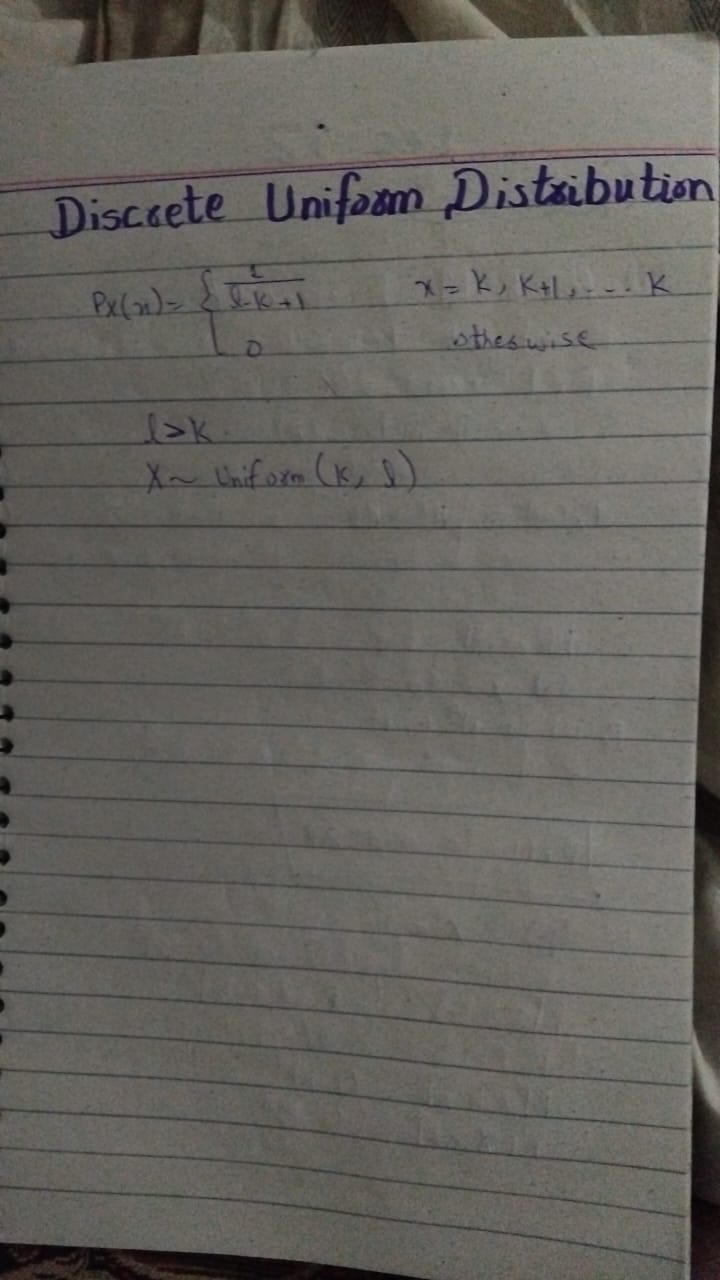 Discrete Uniform Distribution
Px(x) = { 1/(l-k+1) x = k, k+1, .... k
0 otherwise
l>k
X ~ Uniform (k, l)